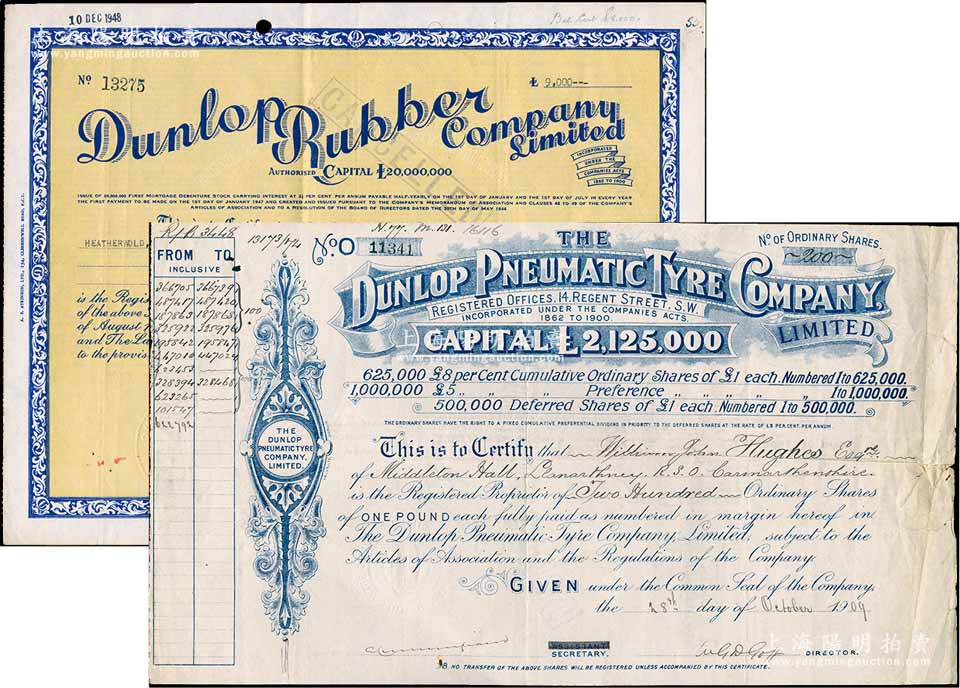 10 DEC 1948
www.yangmingauction.com
Nº 13275
£ 9,000---
CANCELLED
Dunlop Rubber Company Limited
AUTHORISED CAPITAL £20,000,000
INCORPORATED UNDER THE COMPANIES ACTS 1862 TO 1900
THE FIRST PAYMENT TO BE MADE ON THE 1ST DAY OF JANUARY 1947 AND CREATED AND ISSUED PURSUANT TO THE COMPANY'S MEMORANDUM OF ASSOCIATION AND CLAUSES 46 TO 49 OF THE COMPANY'S
ARTICLES OF ASSOCIATION AND TO A RESOLUTION OF THE BOARD OF DIRECTORS DATED THE 30TH DAY OF MAY 1946
is the Regis
of the above
of August
and The La
to the provis
FROM TO
INCLUSIVE
THE DUNLOP PNEUMATIC TYRE COMPANY, LIMITED.
Nº O 11341
Nº OF ORDINARY SHARES.
200
THE
DUNLOP PNEUMATIC TYRE COMPANY,
LIMITED
REGISTERED OFFICES, 14, REGENT STREET, S.W.
INCORPORATED UNDER THE COMPANIES ACTS
1862 TO 1900.
CAPITAL £2,125,000
625,000 £8 per Cent Cumulative Ordinary Shares of £1 each. Numbered 1 to 625,000.
1,000,000 £5 " " " Preference " " " " 1 to 1,000,000.
500,000 Deferred Shares of £1 each. Numbered 1 to 500,000.
THE ORDINARY SHARES HAVE THE RIGHT TO A FIXED CUMULATIVE PREFERENTIAL DIVIDEND IN PRIORITY TO THE DEFERRED SHARES AT THE RATE OF £8 PER CENT. PER ANNUM
This is to Certify that William John Hughes Esqre
of Middleton Hall, Llanarthney R.S.O. Carmarthenshire
is the Registered Proprietor of Two Hundred Ordinary Shares
of ONE POUND each fully paid as numbered in margin hereof in
The Dunlop Pneumatic Tyre Company, Limited, subject to the
Articles of Association and the Regulations of the Company.
GIVEN under the Common Seal of the Company,
the 28th day of October 1909
SECRETARY.
DIRECTOR.
NO TRANSFER OF THE ABOVE SHARES WILL BE REGISTERED UNLESS ACCOMPANIED BY THIS CERTIFICATE.
上海陽明拍賣